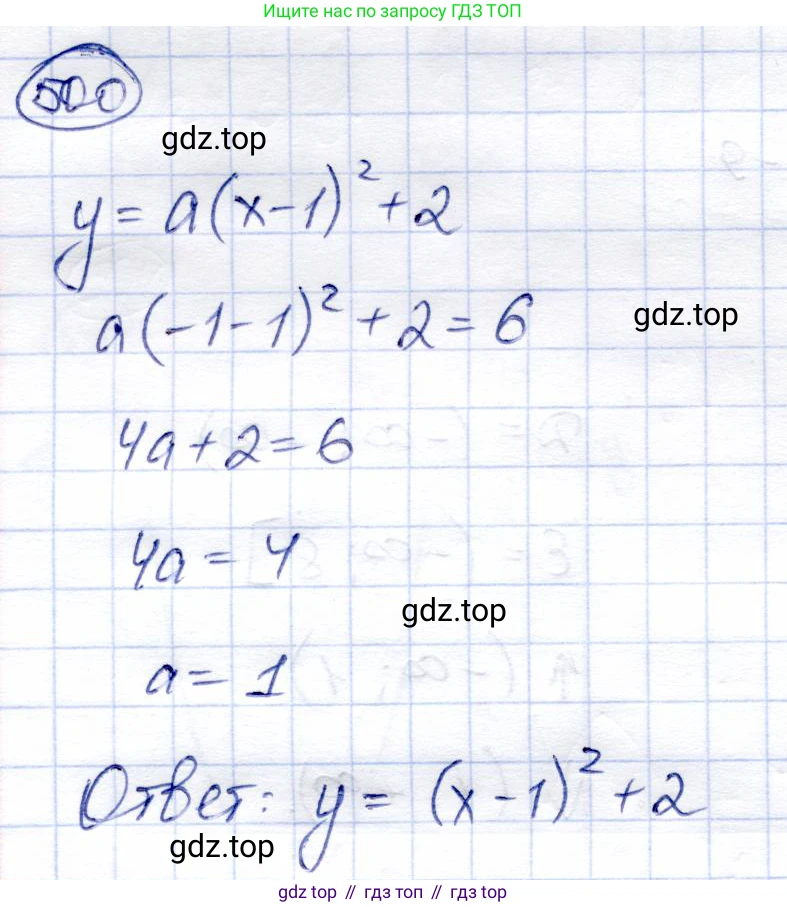 Ищите нас по запросу ГДЗ ТОП
500
gdz.top
y = a(x-1)² + 2
a(-1-1)² + 2 = 6
gdz.top
4a + 2 = 6
4a = 4
gdz.top
a = 1
Ответ: y = (x-1)² + 2
gdz.top
gdz top // гдз топ // gdz top